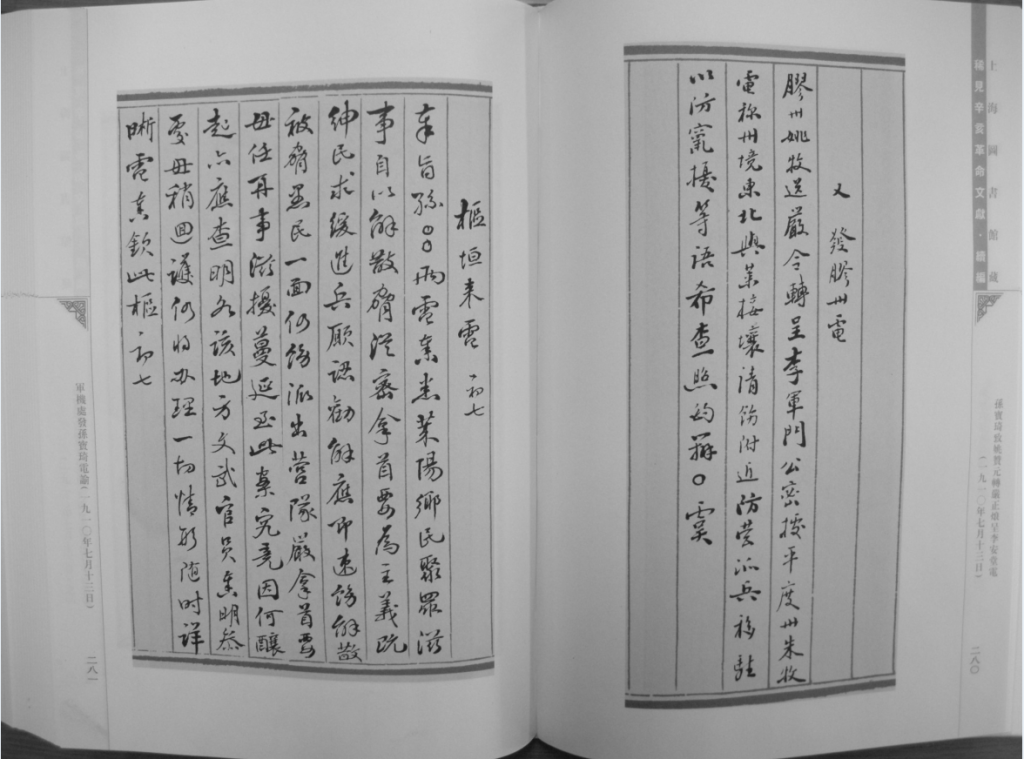 上海圖書館藏
稀見辛亥革命文獻·續編
孫寶琦致姚元轉嚴正呈李安堂電
（一九一〇年七月十三日）
二八〇
又 發膠州電
膠州姚牧送嚴令轉呈李軍門公密接平度州朱牧
電称州境東北與莱接壤請飭附近防营派兵移駐
以防竄擾等语希查照酌辦〇
樞垣来電 初七
奉旨孫〇〇兩電奏悉莱陽鄉民聚眾滋
事自以解散脅從密拿首要為主義既
紳民求緩進兵願認勸解應即速飭解散
被脅愚民一面仍飭派出营隊嚴拿首要
毋任再事滋擾蔓延至此案究竟因何釀
起亦應查明各該地方文武官員查明叅
處毋稍迴護仍將办理一切情形随时詳
晰電奏欽此樞 初七
軍機處發孫寶琦電諭（一九一〇年七月十三日）
二八一